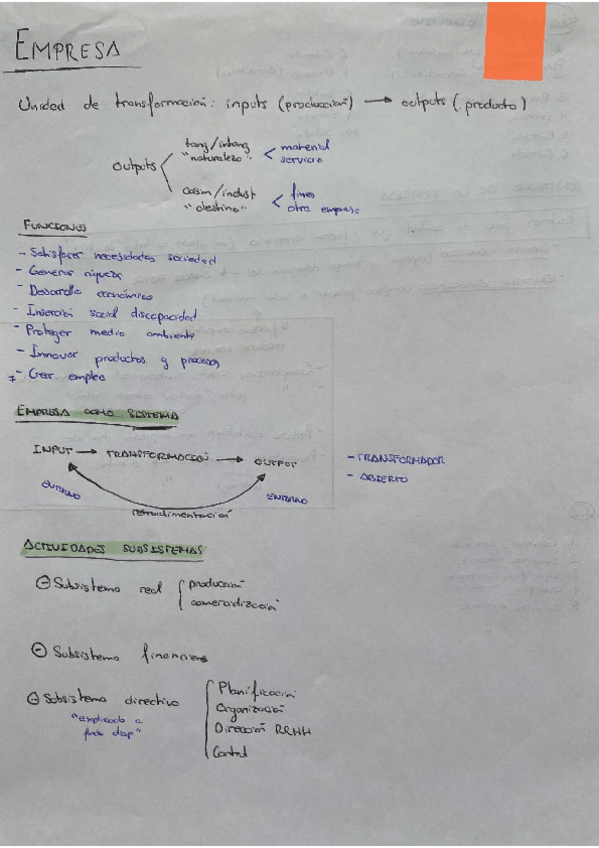 EMPRESA
Unidad de transformación: inputs (producción) → outputs (producto)
outputs
tang/intang
"naturaleza"
material
servicio
cosm/indust
"destino"
fines
otra empresa
FUNCIONES
- Satisfacer necesidades sociedad
- Generar riqueza
- Desarrollo económico
- Inserción social discapacidad
- Proteger medio ambiente
- Innovar productos y procesos
- Crear empleo
EMPRESA COMO SISTEMA
INPUT → TRANSFORMACIÓN → OUTPUT
- TRANSFORMADOR
- ABIERTO
ENTORNO
ENTORNO
retroalimentación
ACTIVIDADES SUBSISTEMAS
Subsistema real
producción
comercialización
Subsistema financiero
Subsistema directivo
"explicado a
Planificación
Organización
Dirección RRHH
Control